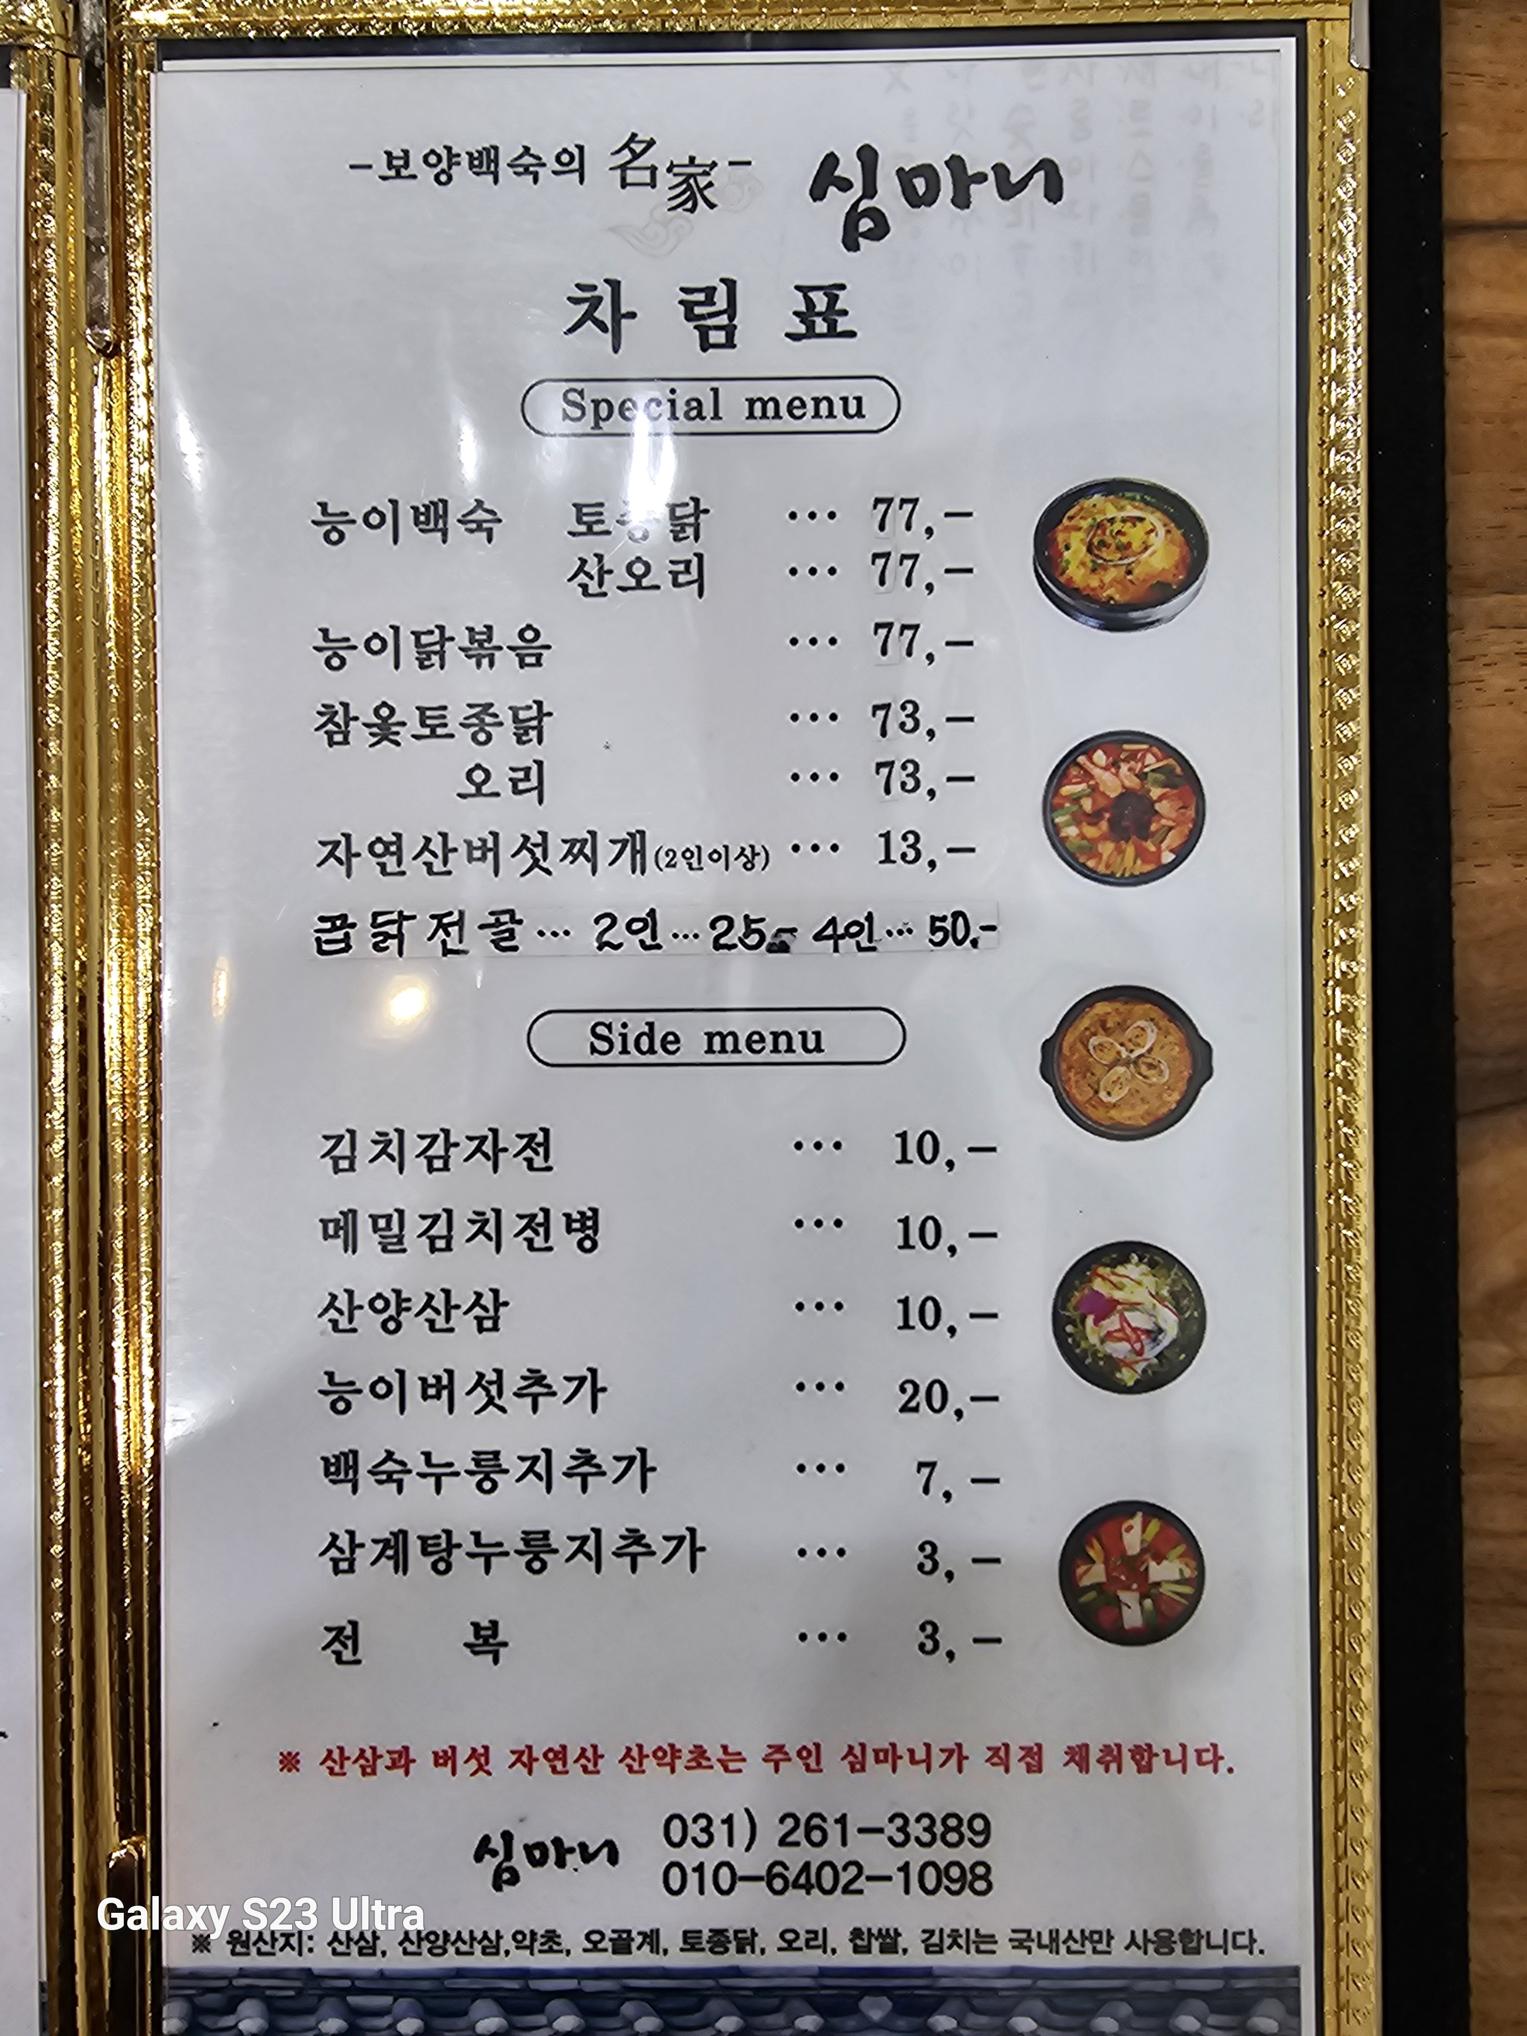 -보양백숙의 名家- 심마니
차림표
Special menu
능이백숙 토종닭 ··· 77,-
산오리 ··· 77,-
능이닭볶음 ··· 77,-
참옻토종닭 ··· 73,-
오리 ··· 73,-
자연산버섯찌개(2인이상) ··· 13,-
곱닭전골 ··· 2인 ··· 25,- 4인 ··· 50,-
Side menu
김치감자전 ··· 10,-
메밀김치전병 ··· 10,-
산양산삼 ··· 10,-
능이버섯추가 ··· 20,-
백숙누룽지추가 ··· 7,-
삼계탕누룽지추가 ··· 3,-
전 복 ··· 3,-
※ 산삼과 버섯 자연산 산약초는 주인 심마니가 직접 채취합니다.
심마니 031) 261-3389
010-6402-1098
Galaxy S23 Ultra
※ 원산지: 산삼, 산양산삼,약초, 오골계, 토종닭, 오리, 찹쌀, 김치는 국내산만 사용합니다.